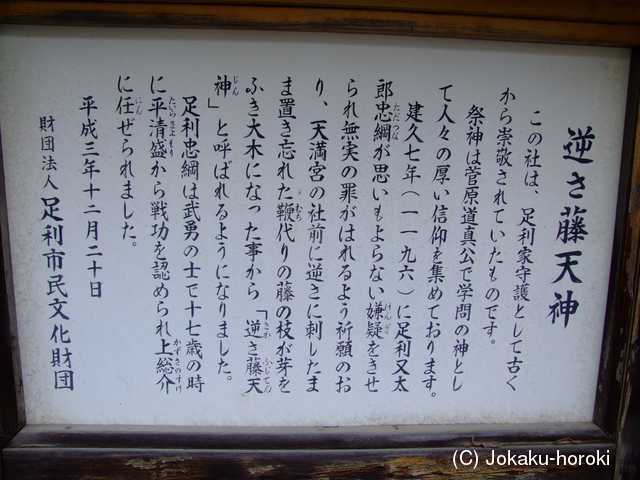 逆さ藤天神
この社は、足利家守護として古く
から崇敬されていたものです。
祭神は菅原道真公で学問の神とし
て人々の厚い信仰を集めております。
建久七年(一一九六)に足利又太
郎忠綱が思いもよらない嫌疑をきせ
られ無実の罪がはれるよう祈願のお
り、天満宮の社前に逆さに刺したま
ま置き忘れた鞭代りの藤の枝が芽を
ふき大木になった事から「逆さ藤天
神」と呼ばれるようになりました。
足利忠綱は武勇の士で十七歳の時
に平清盛から戦功を認められ上総介
に任ぜられました。
平成三年十二月二十日
財団法人 足利市民文化財団
(C) Jokaku-horoki